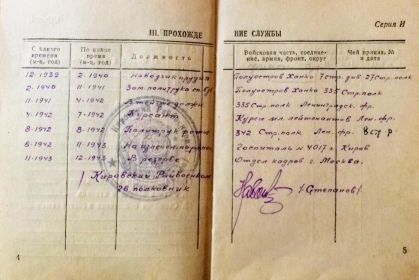 Серия И
III. ПРОХОЖДЕ НИЕ СЛУЖБЫ
С какого времени (м-ц, год) По какое время (м-ц, год) Должность Войсковая часть, соединение, армия, фронт, округ Чей приказ, № и дата
12-1939 2-1940 Наводчик орудия Полуостров Ханко 7 стр. див. 27 Стр. полк
2-1940 11-1941 Зам. политрука Полуостров Ханко 335 Стр. полк
11-1941 4-1942 335 Стр. полк Ленинградск. фр.
4-1942 7-1942 Курсант Курсы мл. лейтенантов Лен. фр.
8-1942 8-1942 Политрук роты 342 Стр. полк Лен. фр.
8-1942 11-1943 На излечении госпиталь № 4017 г. Киров
11-1943 12-1943 В резерве Отдел кадров г. Москва.
Кировский Райвоенком
Гв. полковник
/Степанов/
4
5